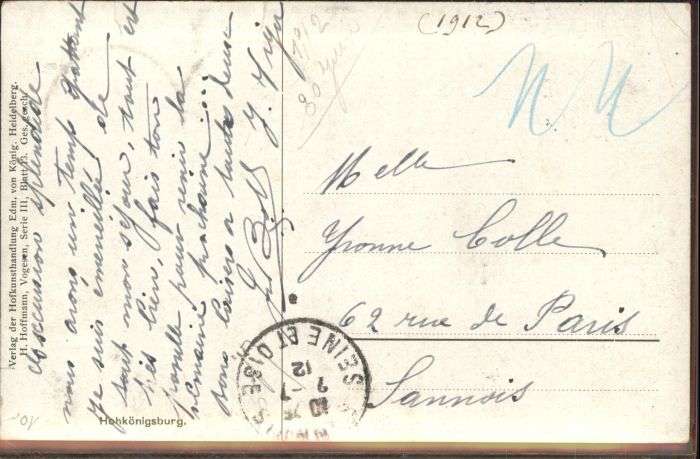 (1912)
Verlag der Hofkunsthandlung Edm. von König, Heidelberg.
H. Hoffmann, Vogesen, Serie III, Blatt 13. Ges. gesch.
Hohkönigsburg.
excursion splendide
nous avons un temps
je suis émerveillé de
tout mon séjour, tout est
très bien, fais ton
pour venir la
semaine prochaine
bons baisers a toutes deux
Melle
Yvonne Colle
62 rue de Paris
Sannois
SEINE ET OISE
7
12